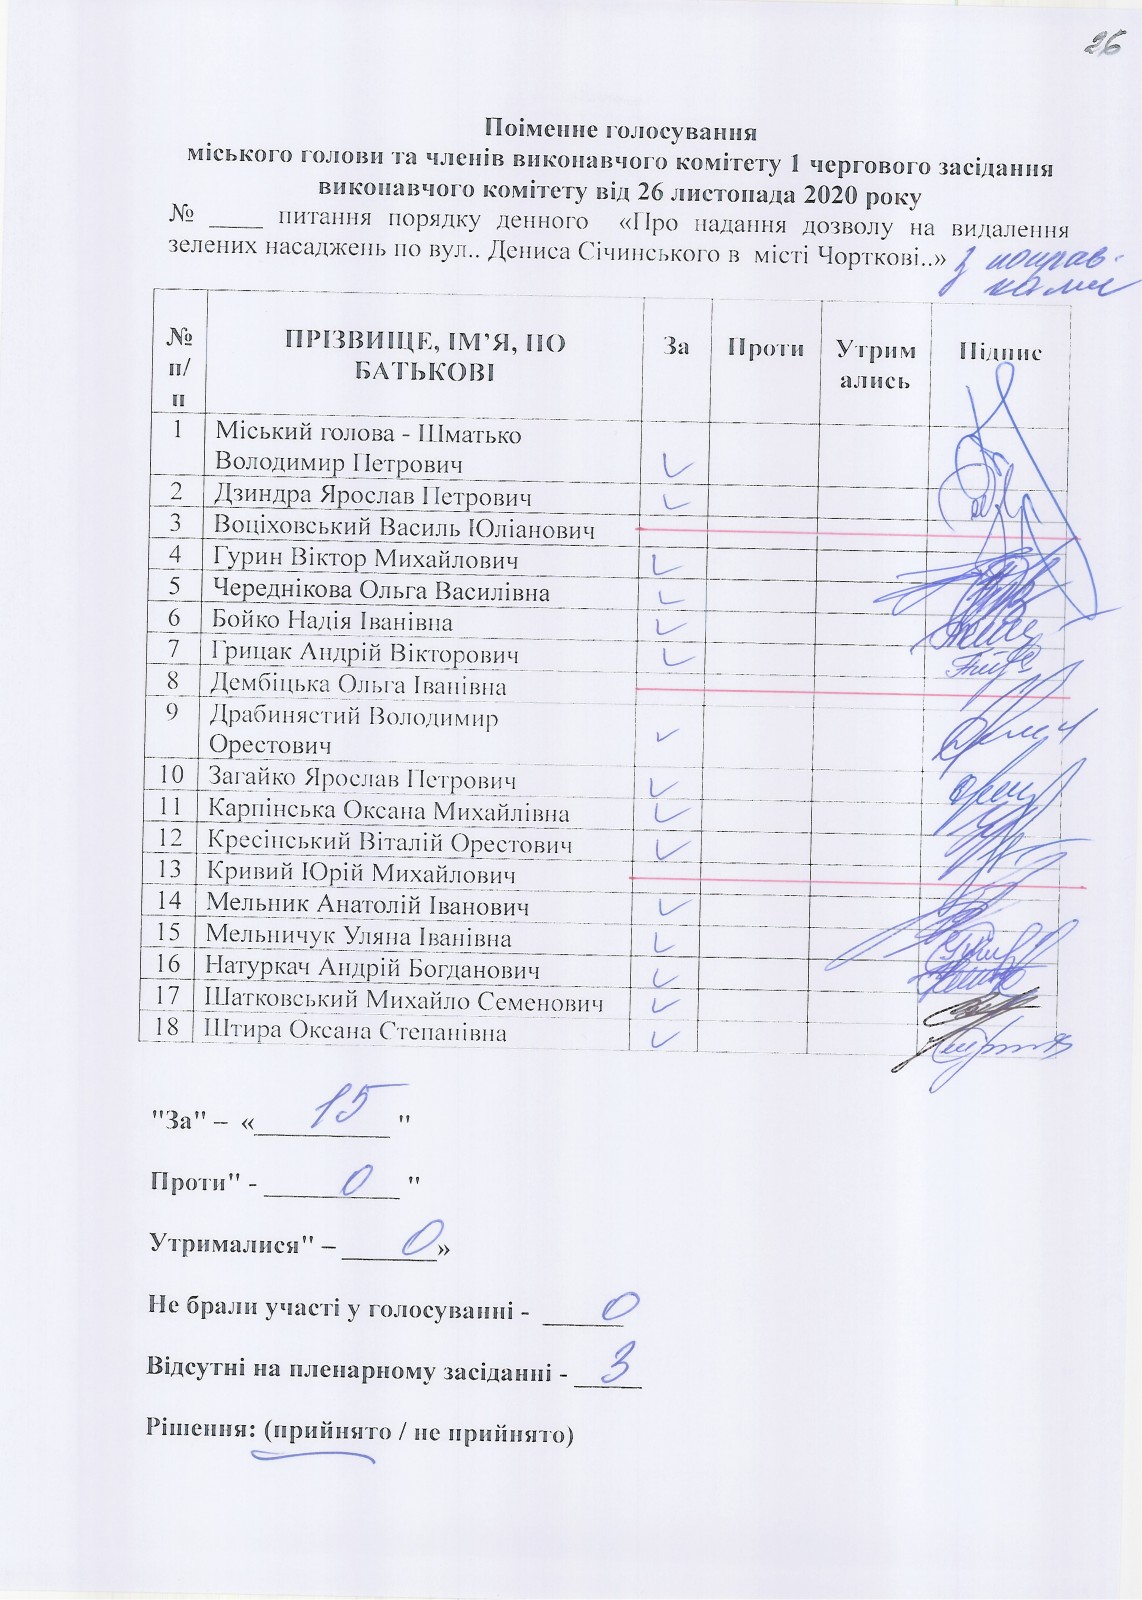 26
Поіменне голосування
міського голови та членів виконавчого комітету 1 чергового засідання
виконавчого комітету від 26 листопада 2020 року
№ ____ питання порядку денного «Про надання дозволу на видалення
зелених насаджень по вул.. Дениса Січинського в місті Чорткові..» з поправ-
ками
№ п/п ПРІЗВИЩЕ, ІМ’Я, ПО БАТЬКОВІ За Проти Утримались Підпис
1 Міський голова - Шматько
Володимир Петрович ✓
2 Дзиндра Ярослав Петрович ✓
3 Воціховський Василь Юліанович
4 Гурин Віктор Михайлович ✓
5 Череднікова Ольга Василівна ✓
6 Бойко Надія Іванівна ✓
7 Грицак Андрій Вікторович ✓
8 Дембіцька Ольга Іванівна
9 Драбинястий Володимир
Орестович ✓
10 Загайко Ярослав Петрович ✓
11 Карпінська Оксана Михайлівна ✓
12 Кресінський Віталій Орестович ✓
13 Кривий Юрій Михайлович
14 Мельник Анатолій Іванович ✓
15 Мельничук Уляна Іванівна ✓
16 Натуркач Андрій Богданович ✓
17 Шатковський Михайло Семенович ✓
18 Штира Оксана Степанівна ✓
"За" – «15"
Проти" - 0"
Утрималися" – 0»
Не брали участі у голосуванні - 0
Відсутні на пленарному засіданні - 3
Рішення: (прийнято / не прийнято)